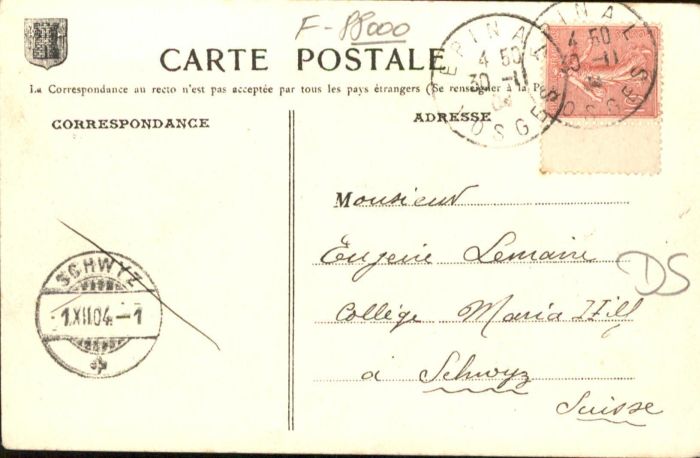 F-88000
CARTE POSTALE
La Correspondance au recto n'est pas acceptée par tous les pays étrangers (Se renseigner à la
CORRESPONDANCE
ADRESSE
EPINAL
4 50
30 -11
VOSGES
EPINAL
4 50
30 -11
VOSGES
Monsieur
Eugène Lemaire
Collège Maria Hilf
à Schwyz
Suisse
DS
SCHWYZ
1.XII.04.-1